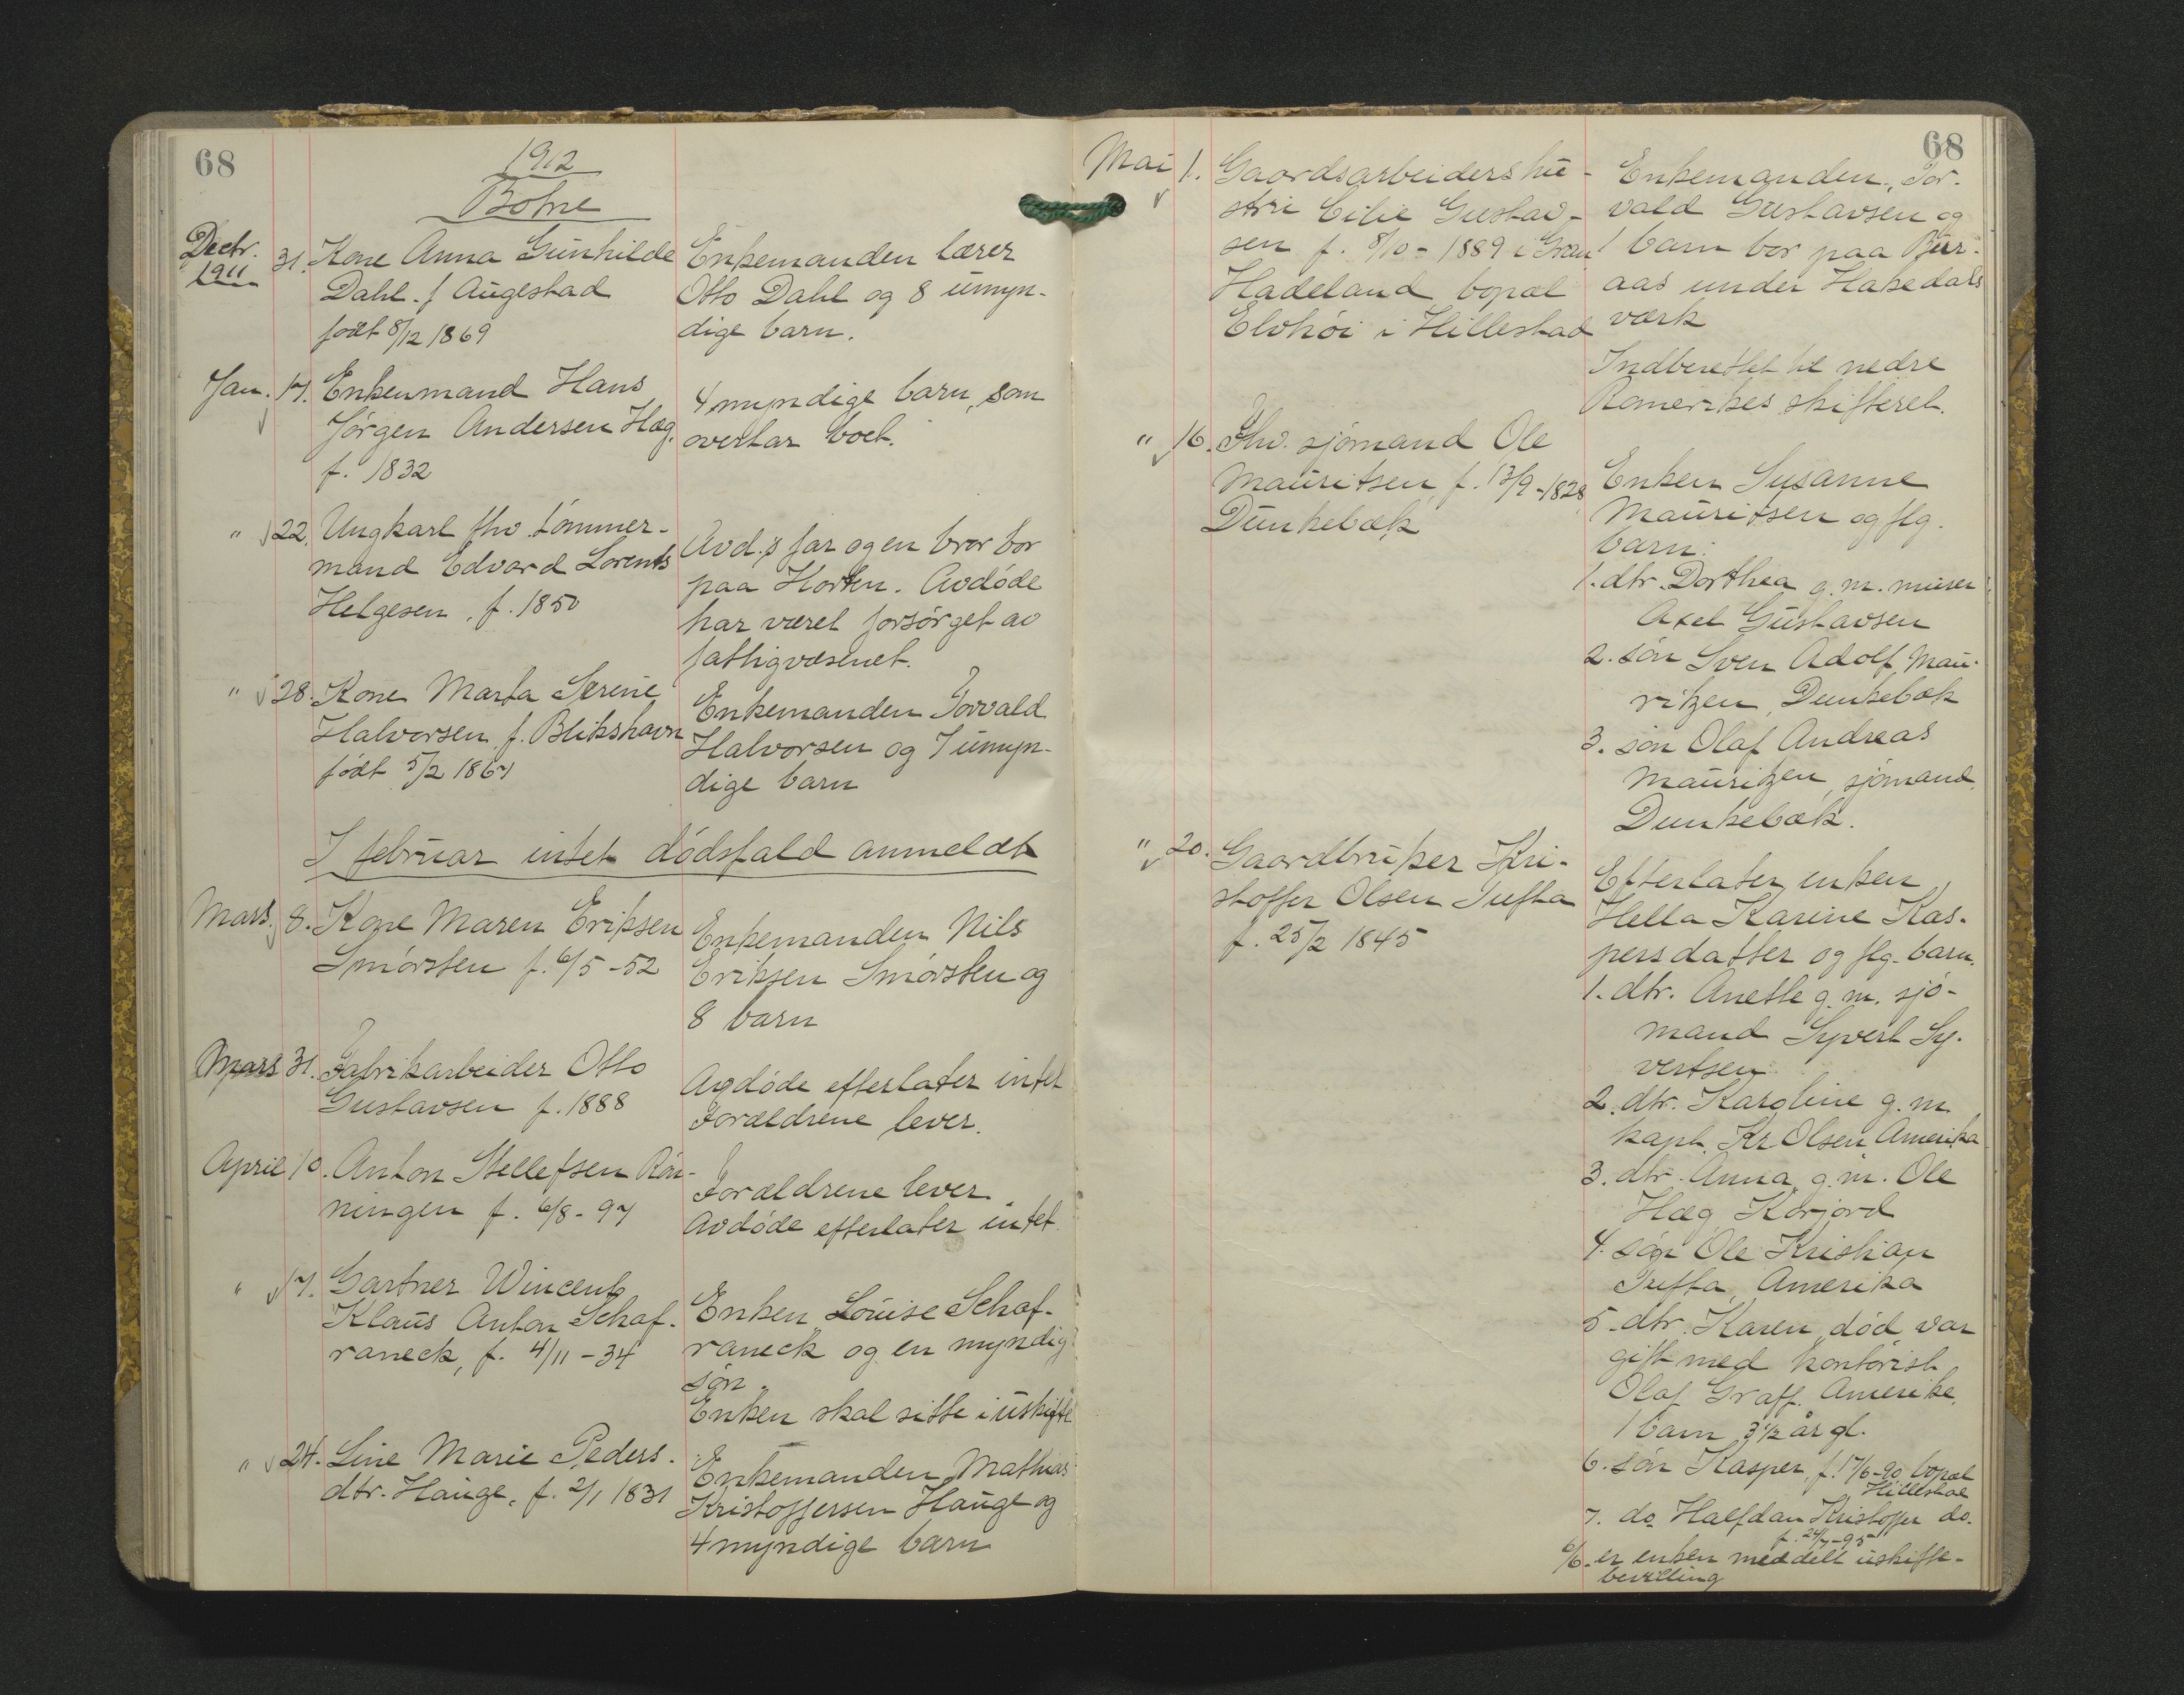 68
1912
Botne
Dectr. 1911 31. Kone Anna Gunhilde
Dahl. f Augestad
født 8/12 1869
Enkemanden lærer
Otto Dahl og 8 umyn-
dige barn.
Jan. 17. Enkemand Hans
Jørgen Andersen Hæg.
f. 1832
4 myndige barn, som
overtar boet.
" 22. Ungkarl fhv. tømmer-
mand Edvard Lorents
Helgesen, f. 1850
Avd.s far og en bror bor
paa Horten. Avdøde
har været forsørget av
fattigvæsenet.
" 28. Kone Marta Serine
Halvorsen, f. Blikshavn
født 5/2 1867
Enkemanden Torvald
Halvorsen og 7 umyn-
dige barn
I februar intet dødsfald anmeldt
Mars. 8. Kone Maren Eriksen
Smørsten f. 6/5 - 52
Enkemanden Nils
Eriksen Smørsten og
8 barn
Mars 31. Fabrikarbeider Otto
Gustavsen f. 1888
Avdøde efterlater intet
Forældrene lever.
April 10. Anton Stellefsen Røn-
ningen f. 6/8 - 97
Forældrene lever.
Avdøde efterlater intet.
" 17. Gartner Wincent
Klaus Anton Schaf-
raneck, f. 4/11 - 34
Enken Louise Schaf-
raneck og en myndig
søn.
Enken skal sitte i uskifte
" 24. Line Marie Peders.
dtr. Hauge, f. 2/1 1831
Enkemanden Mathias
Kristoffersen Hauge og
4 myndige barn
68
Mai 1. Gaardsarbeiders hu-
stru Cilie Gustav-
sen f. 8/10 - 1889 i Gran
Hadeland bopæl
Elvhøi i Hillestad
Enkemanden, Tor-
vald Gustavsen og
1 barn bor paa Bur-
aas under Hakedals
værk
Indberettet til nedre
Romerikes skifteret.
" 16. Fhv. sjømand Ole
Mauritsen, f. 13/9 - 1828
Dunkebæk
Enken Susanne
Mauritsen og flg.
barn:
1. dtr. Dorthea g. m. murer
Axel Gustavsen
2. søn Sven Adolf Mau-
ritzen, Dunkebæk
3. søn Olaf Andreas
Mauritzen, sjømand,
Dunkebæk.
" 20. Gaardbruker Kri-
stoffer Olsen Tufta
f. 25/2 1845
Efterlater enken
Hella Karine Kas-
persdatter og flg. barn.
1. dtr. Anette g. m. sjø-
mand Syvert Sy-
vertsen
2. dtr. Karoline g. m.
kapt. Kr Olsen Amerika
3. dtr. Anna, g. m. Ole
Hæg Korjord
4. søn Ole Kristian
Tufta, Amerika
5. dtr. Karen død, var
gift med kontorist
Olaf Graff. Amerika,
1 barn 3 1/2 år gl.
6. søn Kasper, f. 17/6-90 bopæl
Hillestad
7. do Halfdan Kristoffer do.
f. 24/7-95
6/6. er enken meddelt uskifte-
bevilling